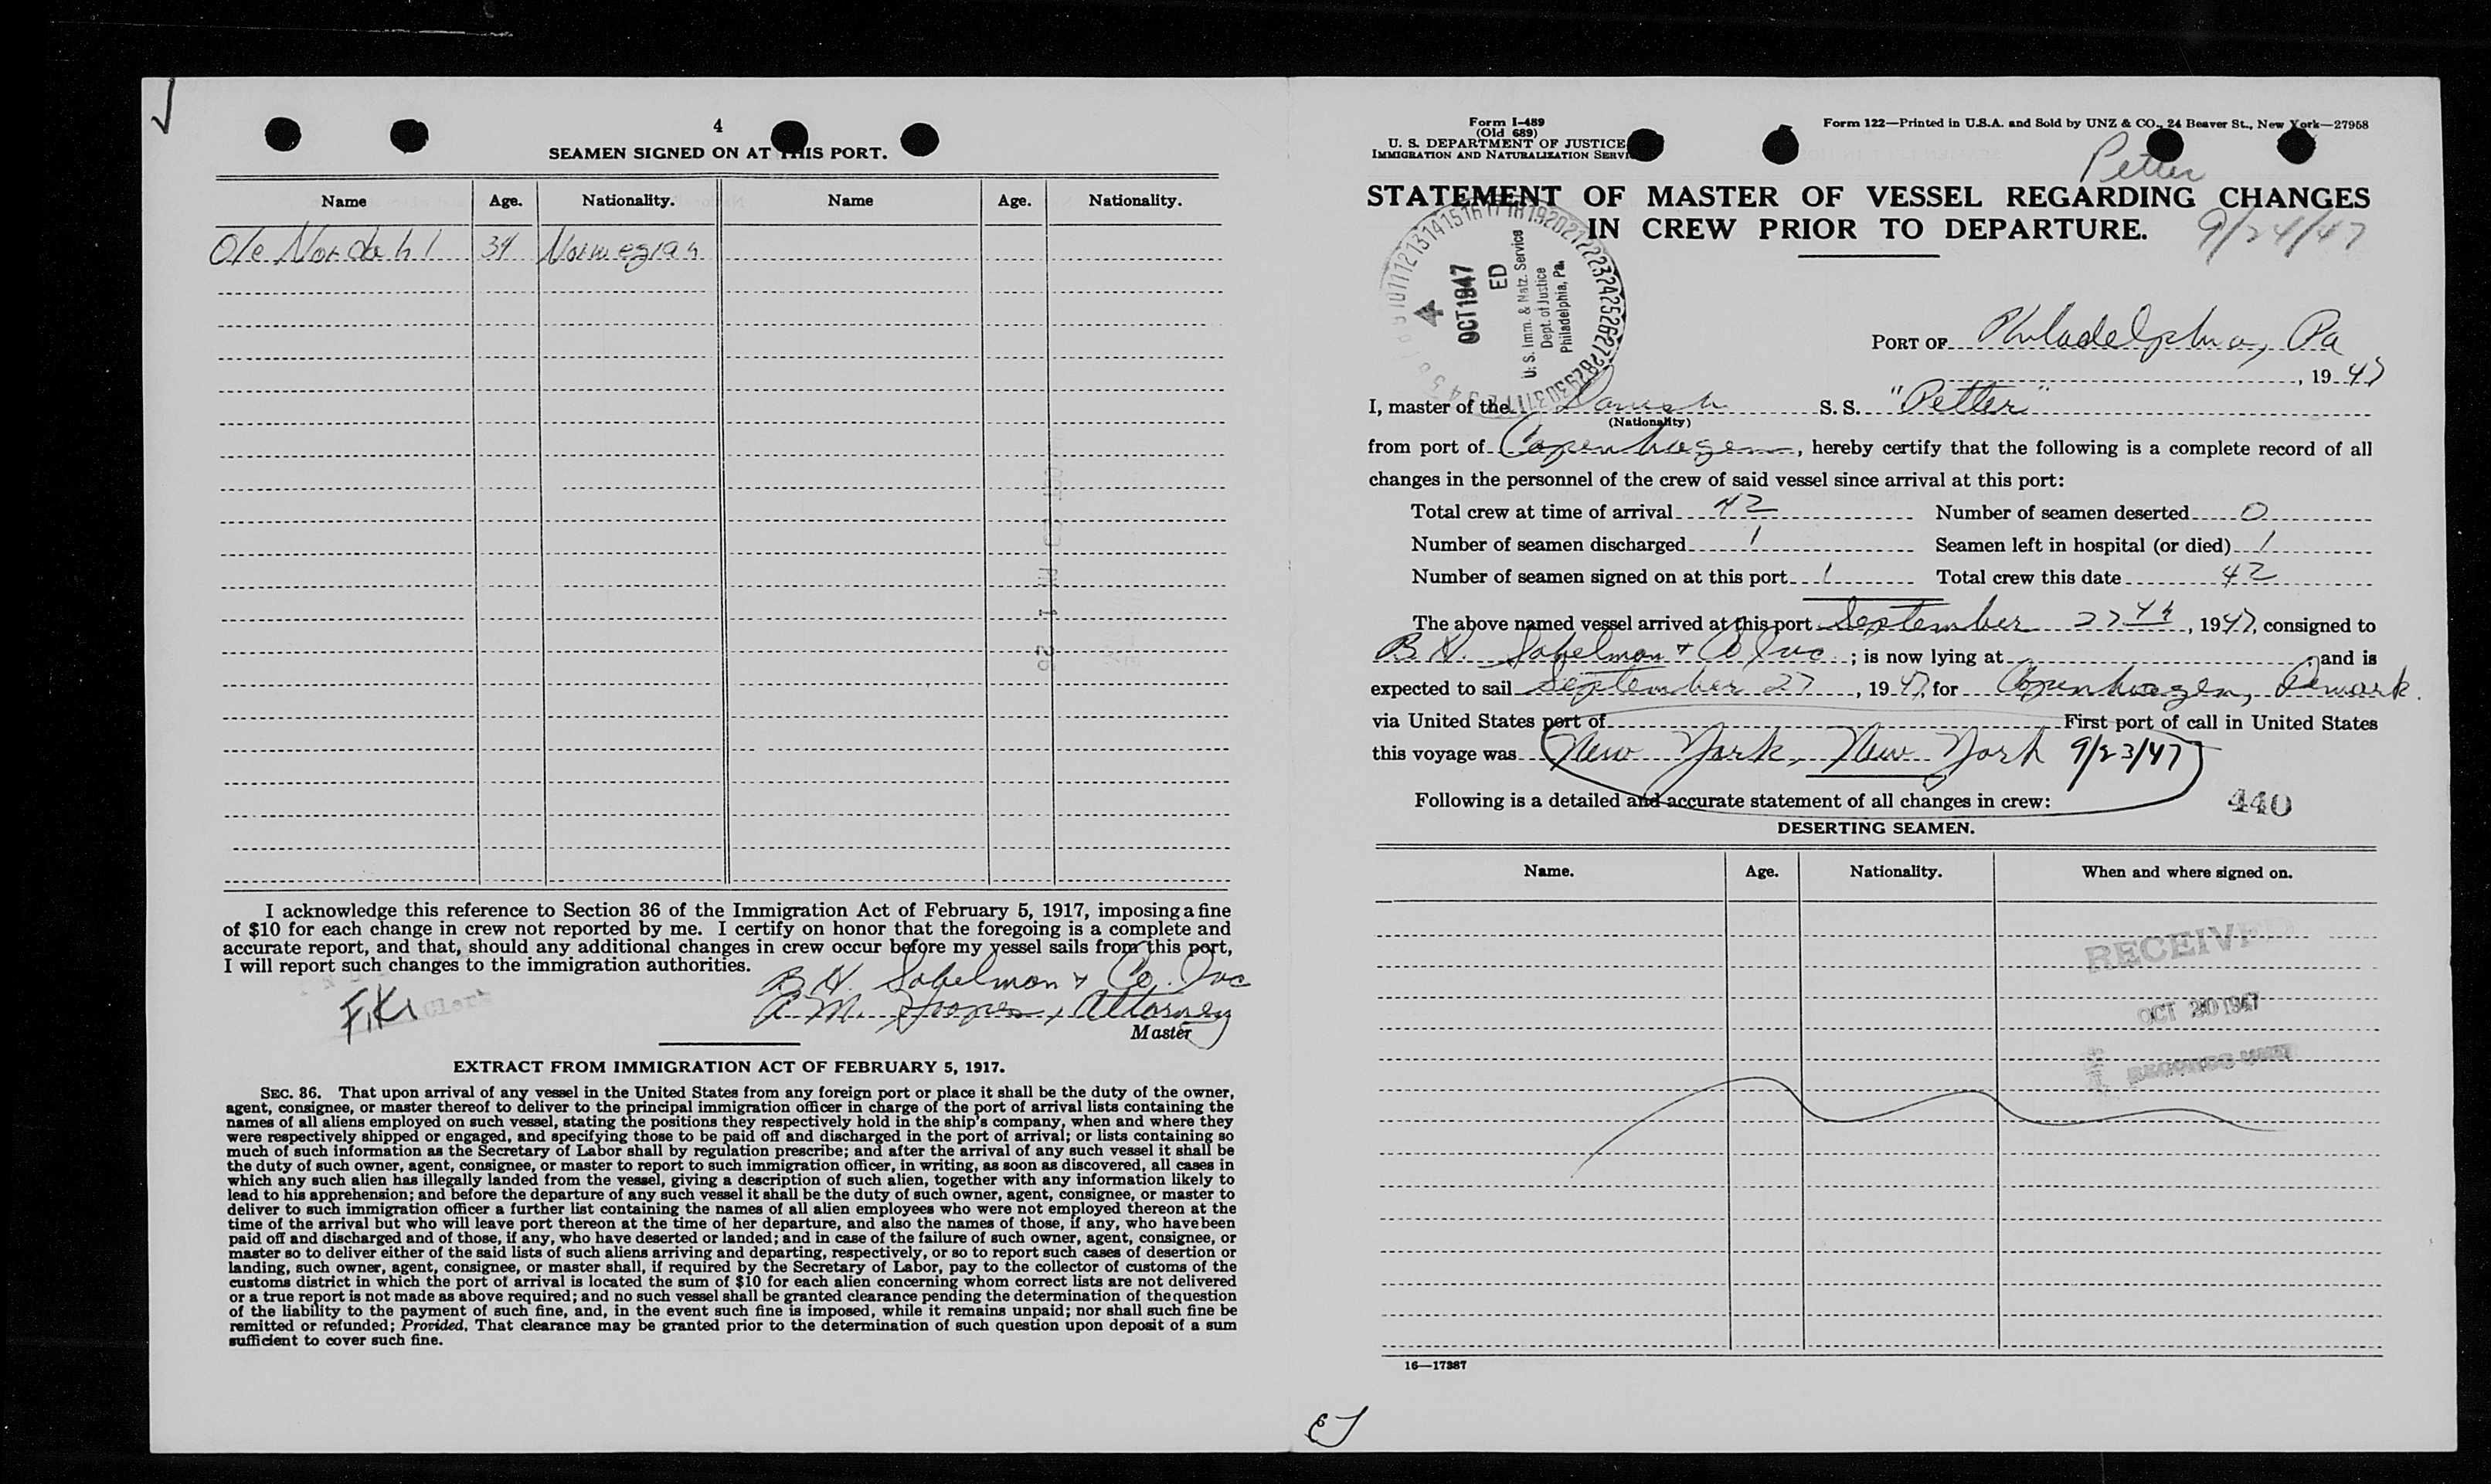 4
SEAMEN SIGNED ON AT THIS PORT.
Name Age. Nationality. Name Age. Nationality.
Ole Nordahl 34 Norwegian
I acknowledge this reference to Section 36 of the Immigration Act of February 5, 1917, imposing a fine
of $10 for each change in crew not reported by me. I certify on honor that the foregoing is a complete and
accurate report, and that, should any additional changes in crew occur before my vessel sails from this port,
I will report such changes to the immigration authorities.
B. H. Sobelman & Co. Inc
Clerk
A. M. Hooper, Attorney
Master
EXTRACT FROM IMMIGRATION ACT OF FEBRUARY 5, 1917.
SEC. 36. That upon arrival of any vessel in the United States from any foreign port or place it shall be the duty of the owner,
agent, consignee, or master thereof to deliver to the principal immigration officer in charge of the port of arrival lists containing the
names of all aliens employed on such vessel, stating the positions they respectively hold in the ship's company, when and where they
were respectively shipped or engaged, and specifying those to be paid off and discharged in the port of arrival; or lists containing so
much of such information as the Secretary of Labor shall by regulation prescribe; and after the arrival of any such vessel it shall be
the duty of such owner, agent, consignee, or master to report to such immigration officer, in writing, as soon as discovered, all cases in
which any such alien has illegally landed from the vessel, giving a description of such alien, together with any information likely to
lead to his apprehension; and before the departure of any such vessel it shall be the duty of such owner, agent, consignee, or master to
deliver to such immigration officer a further list containing the names of all alien employees who were not employed thereon at the
time of the arrival but who will leave port thereon at the time of her departure, and also the names of those, if any, who have been
paid off and discharged and of those, if any, who have deserted or landed; and in case of the failure of such owner, agent, consignee, or
master so to deliver either of the said lists of such aliens arriving and departing, respectively, or so to report such cases of desertion or
landing, such owner, agent, consignee, or master shall, if required by the Secretary of Labor, pay to the collector of customs of the
customs district in which the port of arrival is located the sum of $10 for each alien concerning whom correct lists are not delivered
or a true report is not made as above required; and no such vessel shall be granted clearance pending the determination of the question
of the liability to the payment of such fine, and, in the event such fine is imposed, while it remains unpaid; nor shall such fine be
remitted or refunded; Provided, That clearance may be granted prior to the determination of such question upon deposit of a sum
sufficient to cover such fine.
Form I-489
(Old 689)
U. S. DEPARTMENT OF JUSTICE
IMMIGRATION AND NATURALIZATION SERVI
Form 122—Printed in U.S.A. and Sold by UNZ & CO., 24 Beaver St., New York—27958
Petter
STATEMENT OF MASTER OF VESSEL REGARDING CHANGES
IN CREW PRIOR TO DEPARTURE.
9/24/47
4
OCT 1947
ED
U. S. Imm. & Natz. Service
Dept. of Justice
Philadelphia, Pa.
PORT OF Philadelphia, Pa
, 19 47
I, master of the Danish S. S. "Petter"
(Nationality)
from port of Copenhagen, hereby certify that the following is a complete record of all
changes in the personnel of the crew of said vessel since arrival at this port:
Total crew at time of arrival 42 Number of seamen deserted 0
Number of seamen discharged 1 Seamen left in hospital (or died) 1
Number of seamen signed on at this port 1 Total crew this date 42
The above named vessel arrived at this port September , 1947, consigned to
B H. Sobelman & Co Inc ; is now lying at ; and is
expected to sail September 27 , 1947, for Copenhagen, Demark.
via United States port of First port of call in United States
this voyage was New York, New York 9/23/47
Following is a detailed and accurate statement of all changes in crew:
440
DESERTING SEAMEN.
Name. Age. Nationality. When and where signed on.
RECEIVE
OCT 20 1947
RECORDS UNIT
16—17387